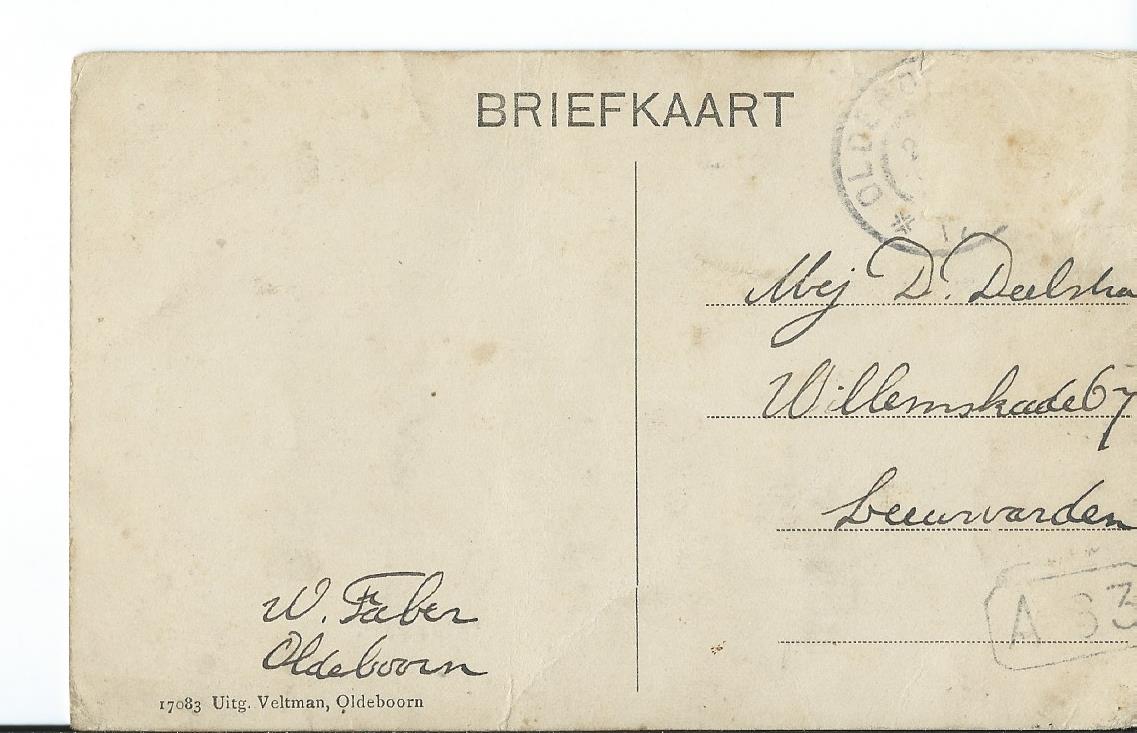 BRIEFKAART
OLDEBO
Mej D. Deelstra
Willemskade 67
Leeuwarden
A 33
W. Faber
Oldeboorn
17083 Uitg. Veltman, Oldeboorn